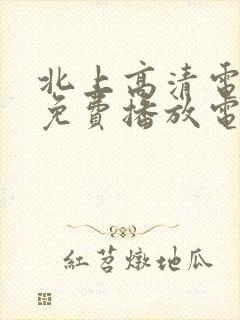 北上高清電
免費播放電
紅苕燉地瓜